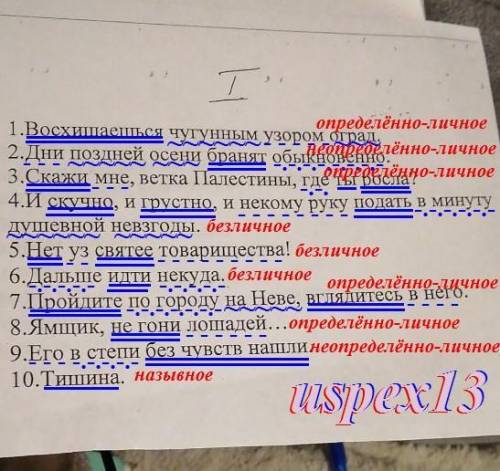 I
определённо-личное
1.Восхищаешься чугунным узором оград.
неопределённо-личное
2.Дни поздней осени бранят обыкновенно.
определённо-личное
3.Скажи мне, ветка Палестины, где ты росла!
4.И скучно, и грустно, и некому руку подать в минуту
душевной невзгоды. безличное
5.Нет уз святее товарищества! безличное
6.Дальше идти некуда. безличное
определённо-личное
7.Пройдите по городу на Неве, вглядитесь в него.
8.Ямщик, не гони лошадей… определённо-личное
9.Его в степи без чувств нашли неопределённо-личное
10.Тишина. назывное
uspex13